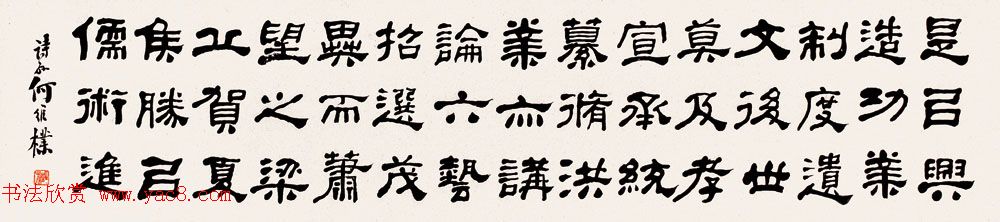 是㠯興
造功業
制度遺
文後世
莫及孝
宣承統
纂脩洪
業亦講
論六藝
招選茂
異而蕭
望之梁
丘賀夏
侯勝㠯
儒術進
詩孫何維樸
书法欣赏 www.yac8.com